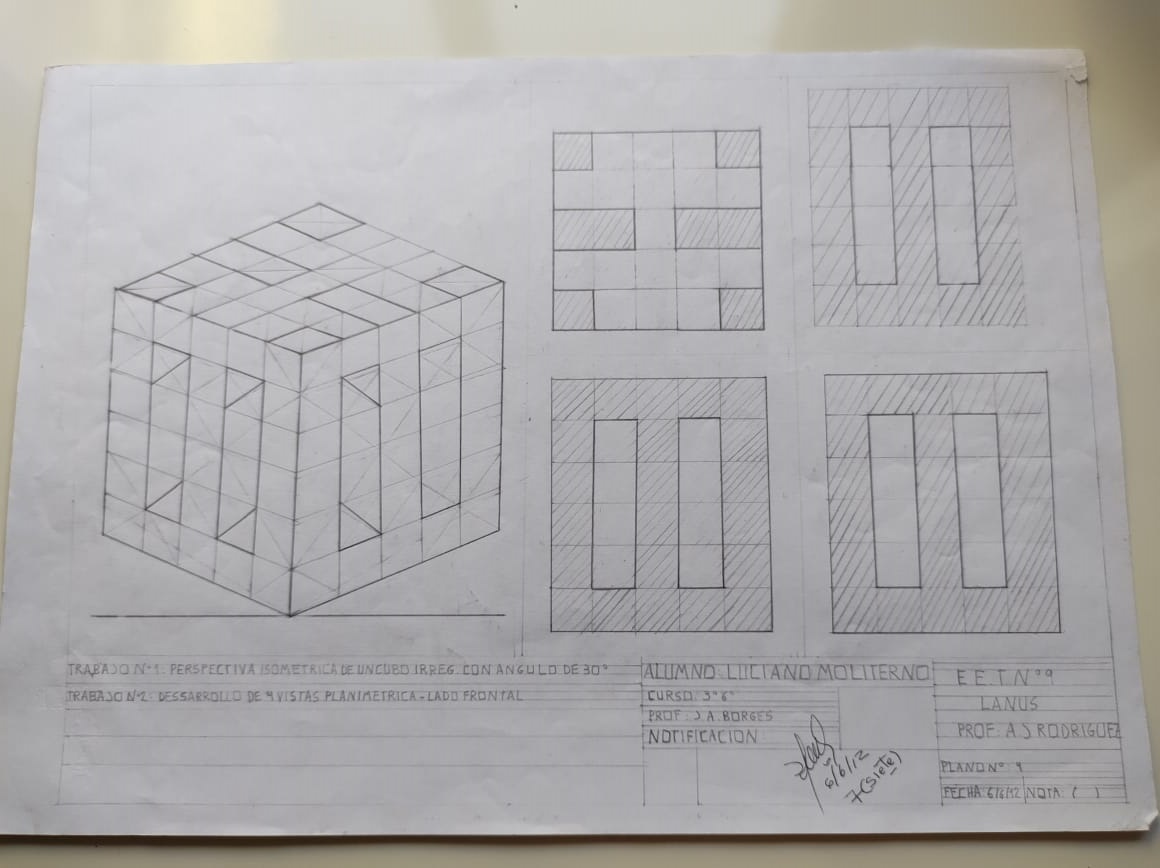 TRABAJO Nº1: PERSPECTIVA ISOMETRICA DE UN CUBO IRREG. CON ANGULO DE 30°
TRABAJO Nº2: DESSARROLLO DE 4 VISTAS PLANIMETRICA - LADO FRONTAL
ALUMNO: LUCIANO MOLITERNO
CURSO: 3°6°
PROF: J. A. BORGES
NOTIFICACION
6/6/12
7 (siete)
E E. T Nº9
LANUS
PROF: A J RODRIGUEZ
PLANO Nº: 9
FECHA: 6/6/12 NOTA: ( )